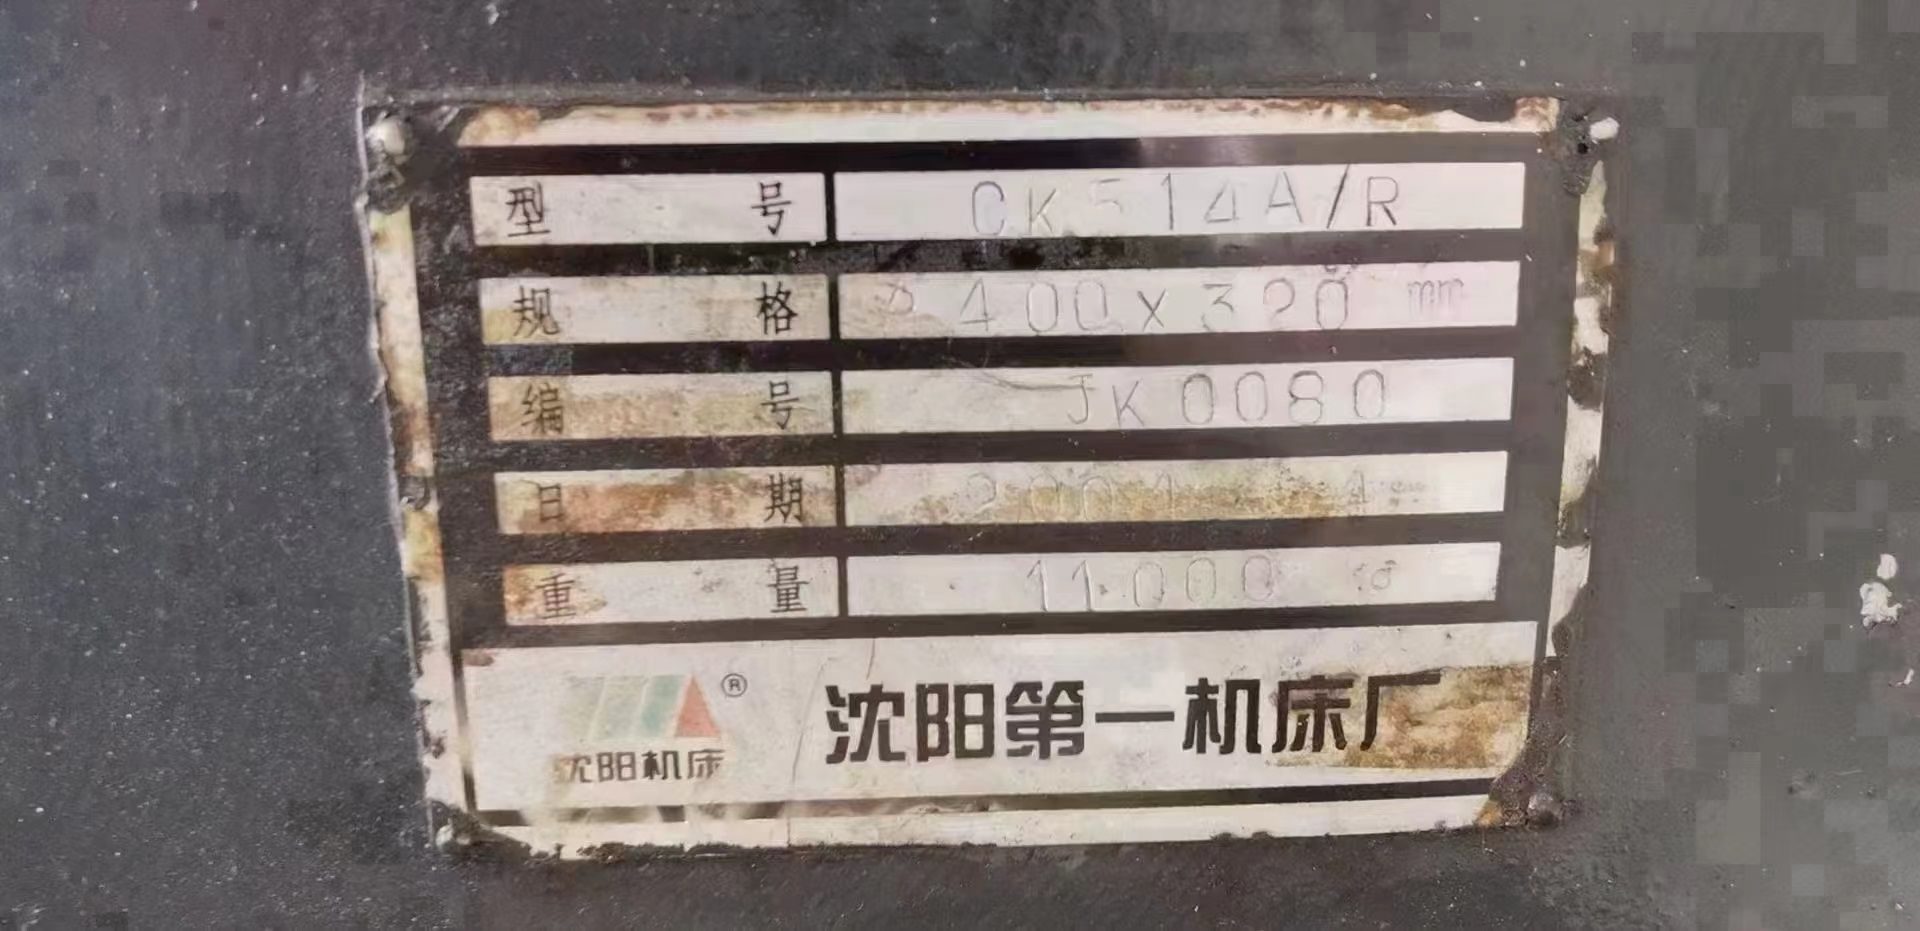 型 号 CK514A/R
规 格 400x320 mm
编 号 JK0080
日 期 2001
重 量 11000
®
沈阳机床
沈阳第一机床厂